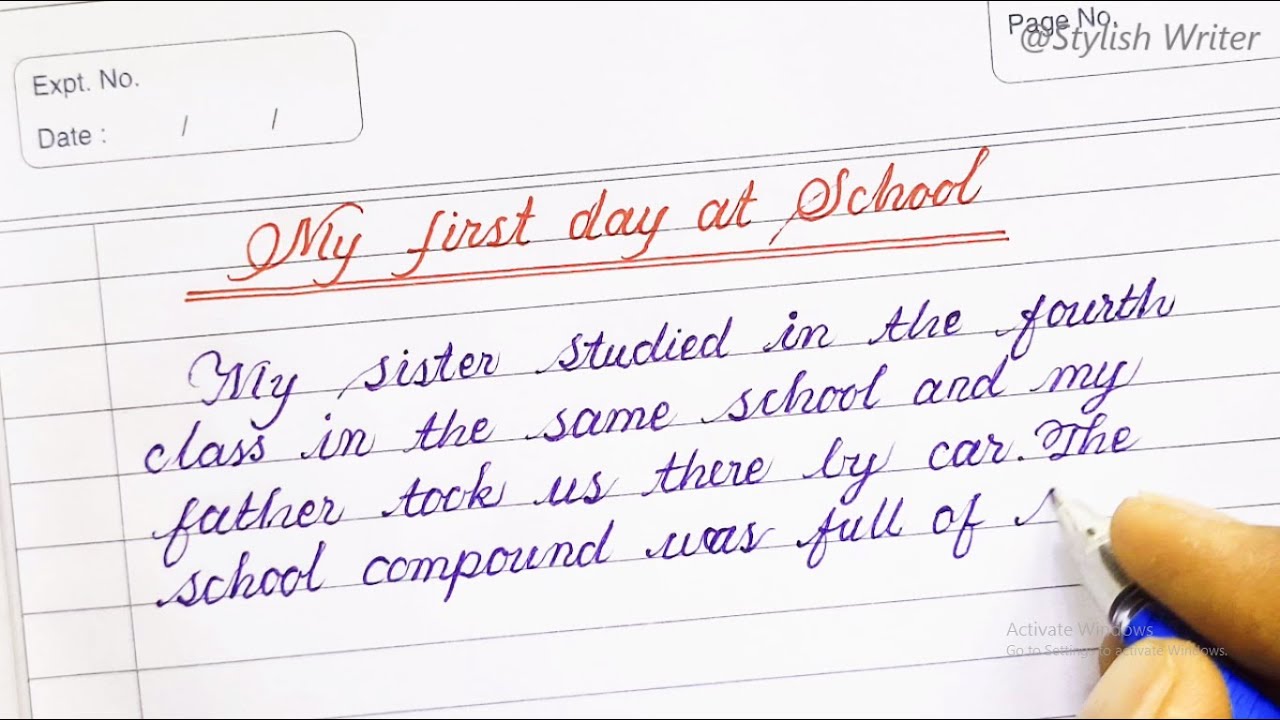 Page No.
@Stylish Writer
Expt. No.
Date : / /
My first day at School
My sister studied in the fourth
class in the same school and my
father took us there by car. The
school compound was full of
Activate Windows
Go to Settings to activate Windows.